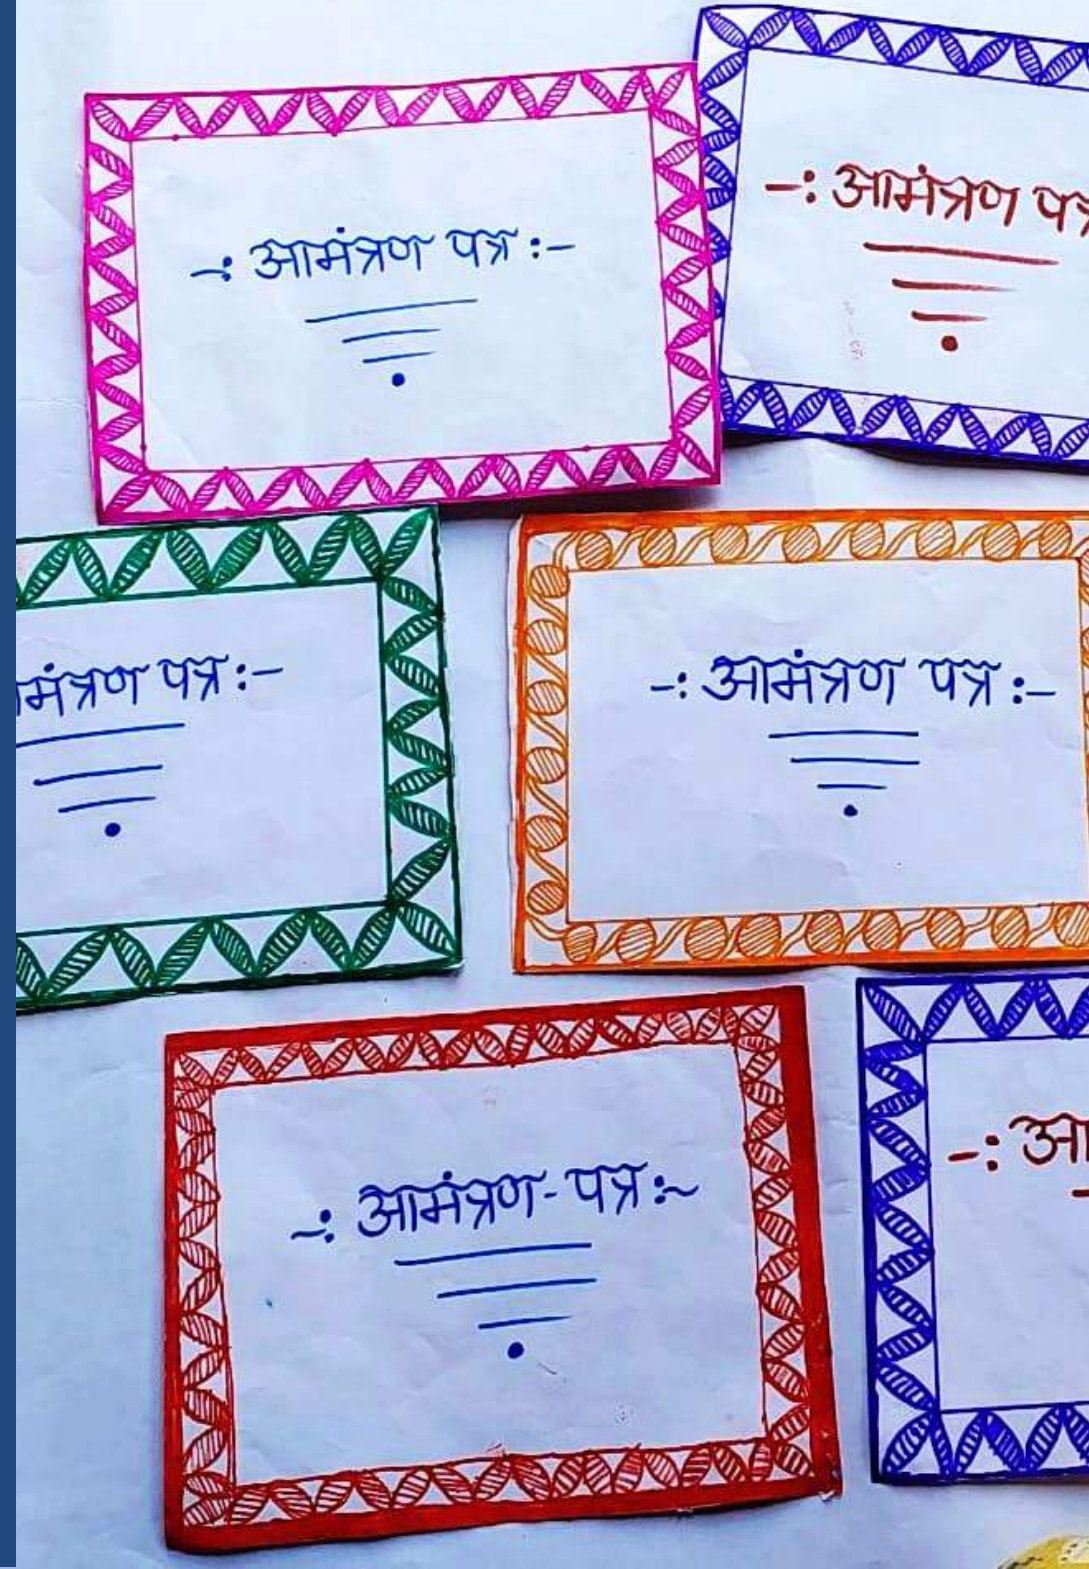 -: आमंत्रण पत्र :-
-: आमंत्रण
पत्र :-
-: आमंत्रण पत्र :-
-: आमंत्रण-पत्र :~